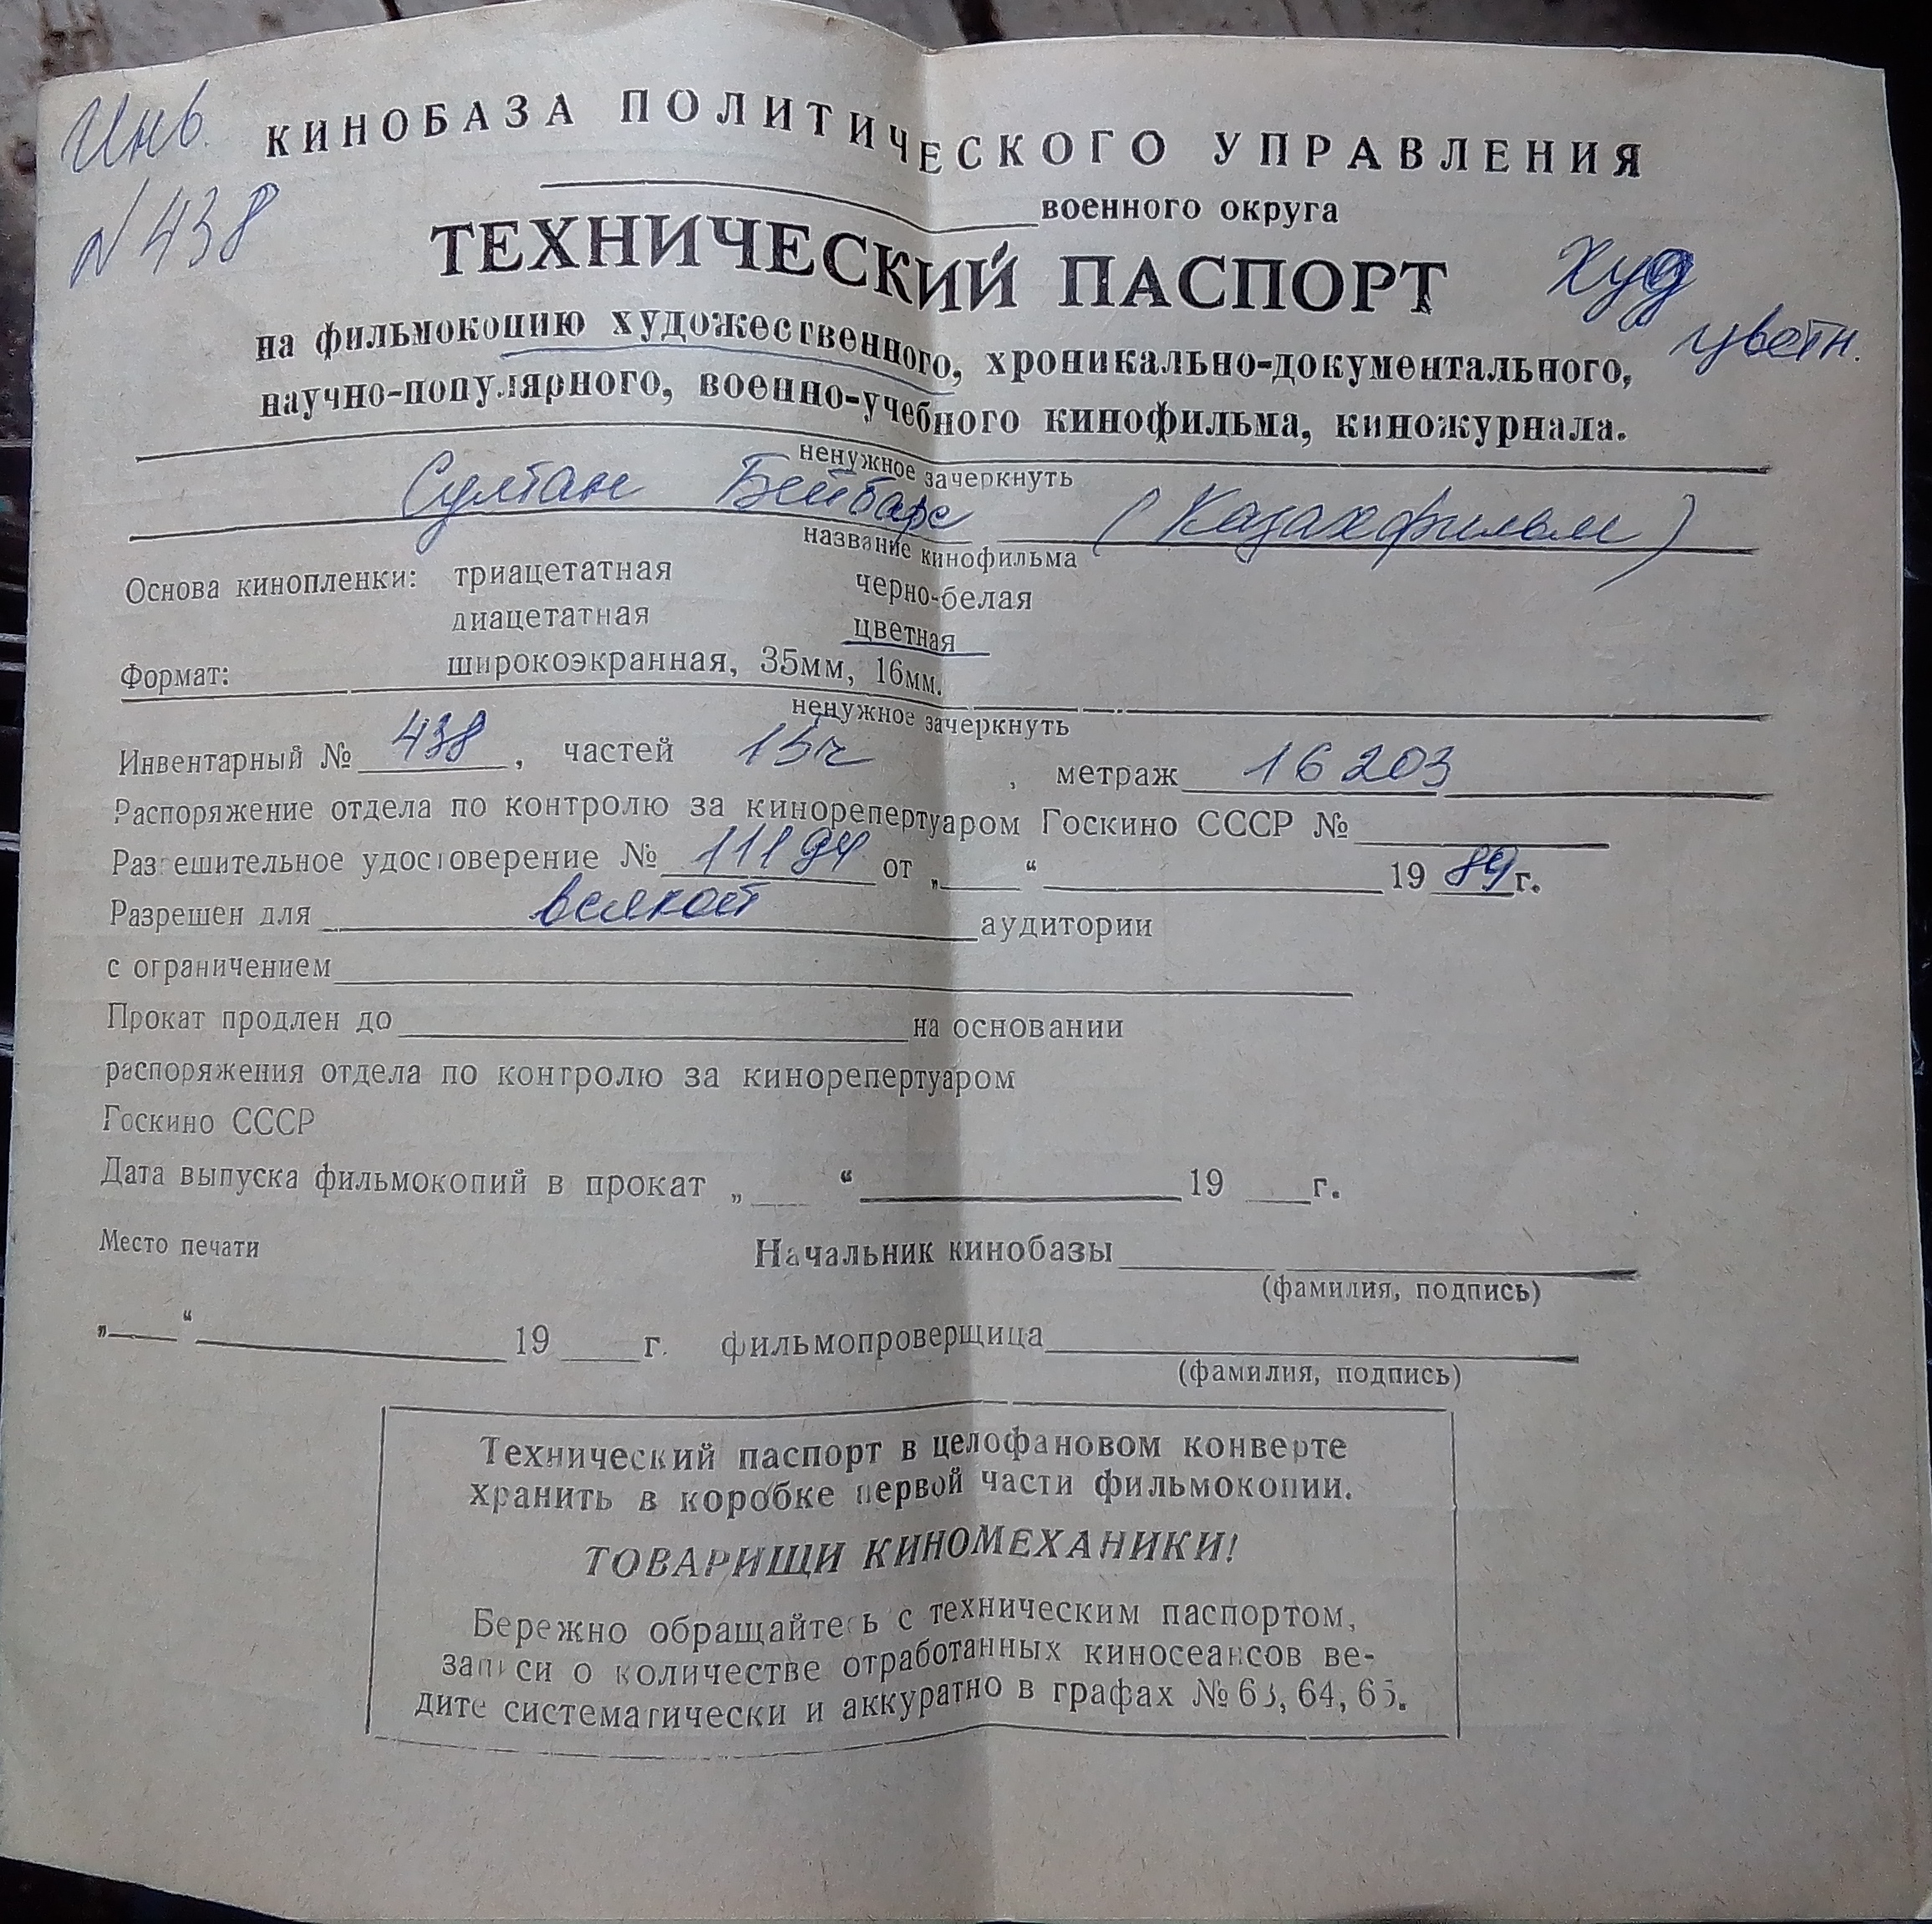 Инв. КИНОБАЗА ПОЛИТИЧЕСКОГО УПРАВЛЕНИЯ
N 438
военного округа
ТЕХНИЧЕСКИЙ ПАСПОРТ
Худ
цветн.
на фильмокопию художественного, хроникально-документального,
научно-популярного, военно-учебного кинофильма, киножурнала.
ненужное зачеркнуть
Султан Бейбарс (Казахфильм)
название кинофильма
Основа кинопленки: триацетатная черно-белая
диацетатная цветная
Формат: широкоэкранная, 35мм, 16мм.
ненужное зачеркнуть
Инвентарный № 438, частей 15ч, метраж 16203
Распоряжение отдела по контролю за кинорепертуаром Госкино СССР №
Разрешительное удостоверение № 111 от „ “ 19 89 г.
Разрешен для всякой аудитории
с ограничением
Прокат продлен до на основании
распоряжения отдела по контролю за кинорепертуаром
Госкино СССР
Дата выпуска фильмокопий в прокат „ “ 19 г.
Место печати Начальник кинобазы
(фамилия, подпись)
„ “ 19 г. фильмопроверщица
(фамилия, подпись)
Технический паспорт в целофановом конверте
хранить в коробке первой части фильмокопии.
ТОВАРИЩИ КИНОМЕХАНИКИ!
Бережно обращайтесь с техническим паспортом,
записи о количестве отработанных киносеансов ве-
дите систематически и аккуратно в графах № 63, 64, 65.